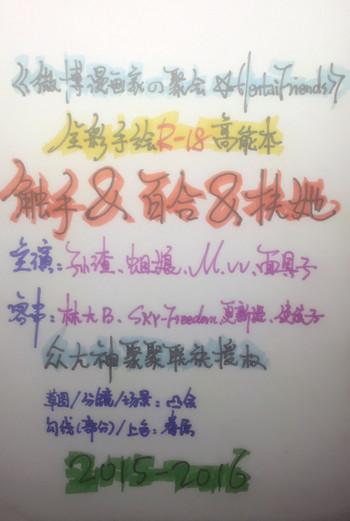 《微博漫画家の聚会 HentaiFriends》
全彩手绘R-18高能本
触手&百合&扶她
主演:孙渣、蛆娘、M.W、面具子
客串:林大B、SKY-Freedom、更新
众大神云聚联袂授权
草图/分镜/场景:凸
勾线(部分)/上色:春
2015-2016